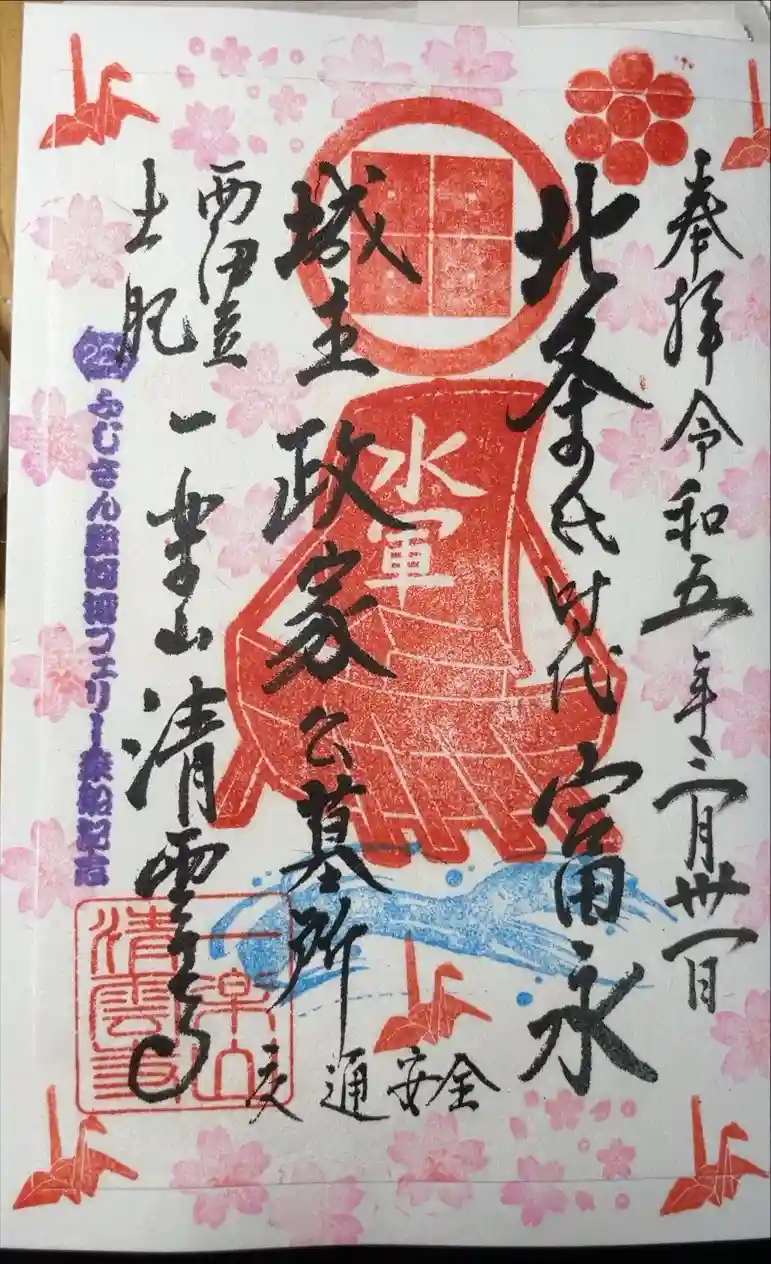 奉拝 令和五年三月卅一日
北条氏时代 富永
水軍
城主 政家公墓所
交通安全
西伊豆
土肥
一楽山 清雲寺
22 ふじさん駿河湾フェリー乗船記念
一楽山
清雲寺